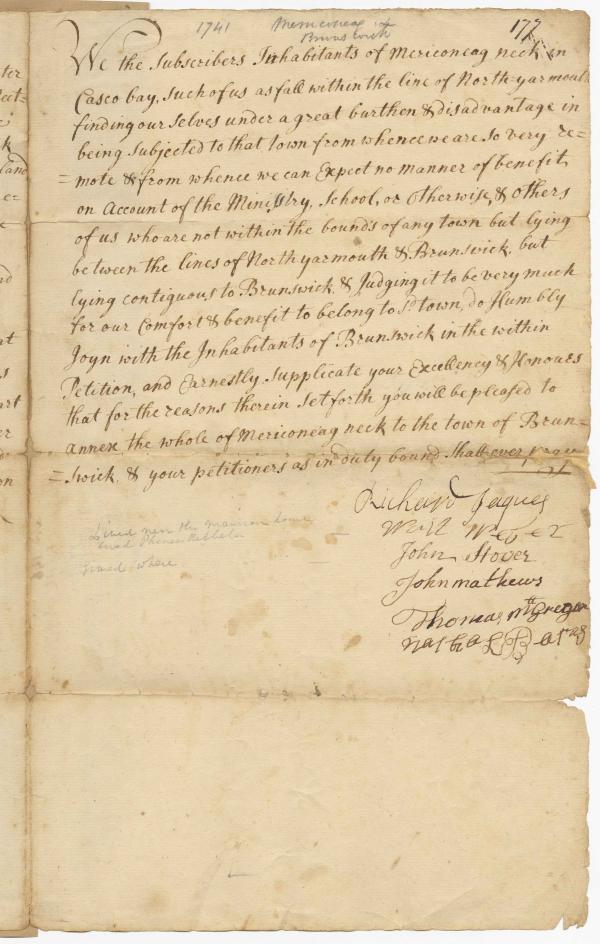 1741 Mericoneag
Brunswick
177
We the Subscribers Inhabitants of Mericoneag neck in
Casco bay, such of us as fall within the line of North-yarmouth
finding our Selves under a great burthen & disadvantage in
being Subjected to that town from whence we are so very re=
=mote & from whence we can Expect no manner of benefit
on Account of the Ministry, School, or Otherwise, & Others
of us who are not within the bounds of any town but lying
between the lines of North yarmouth & Brunswick, but
lying contiguous to Brunswick, & Judging it to be very much
for our Comfort & benefit to belong to sd town, do Humbly
Joyn with the Inhabitants of Brunswick in the within
Petition, and Earnestly Supplicate your Excellency & Honours
that for the reasons therein Set forth you will be pleased to
annex the whole of Mericoneag neck to the town of Brun=
=swick, & your petitioners as in duty bound Shall ever pray
Richard Jaques
John Stover
John mathews
Thomas McGregor
Lived near the mansion house
where